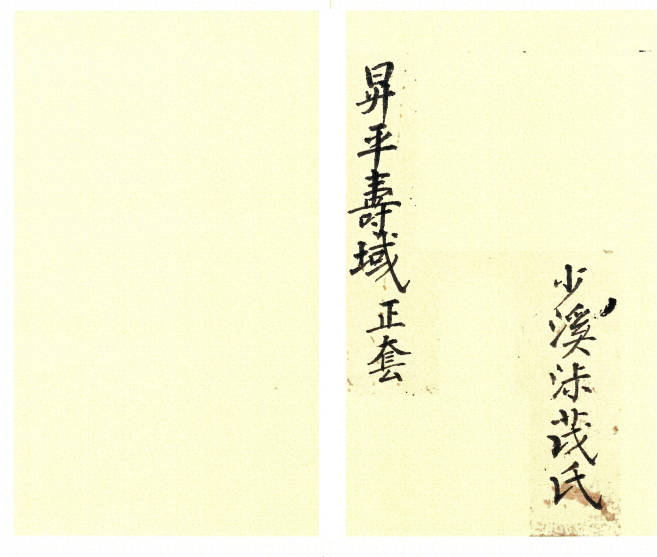 少溪茂氏
昇平壽域 正套